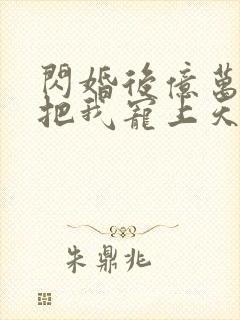 閃婚後億萬
把我寵上天
朱鼎兆